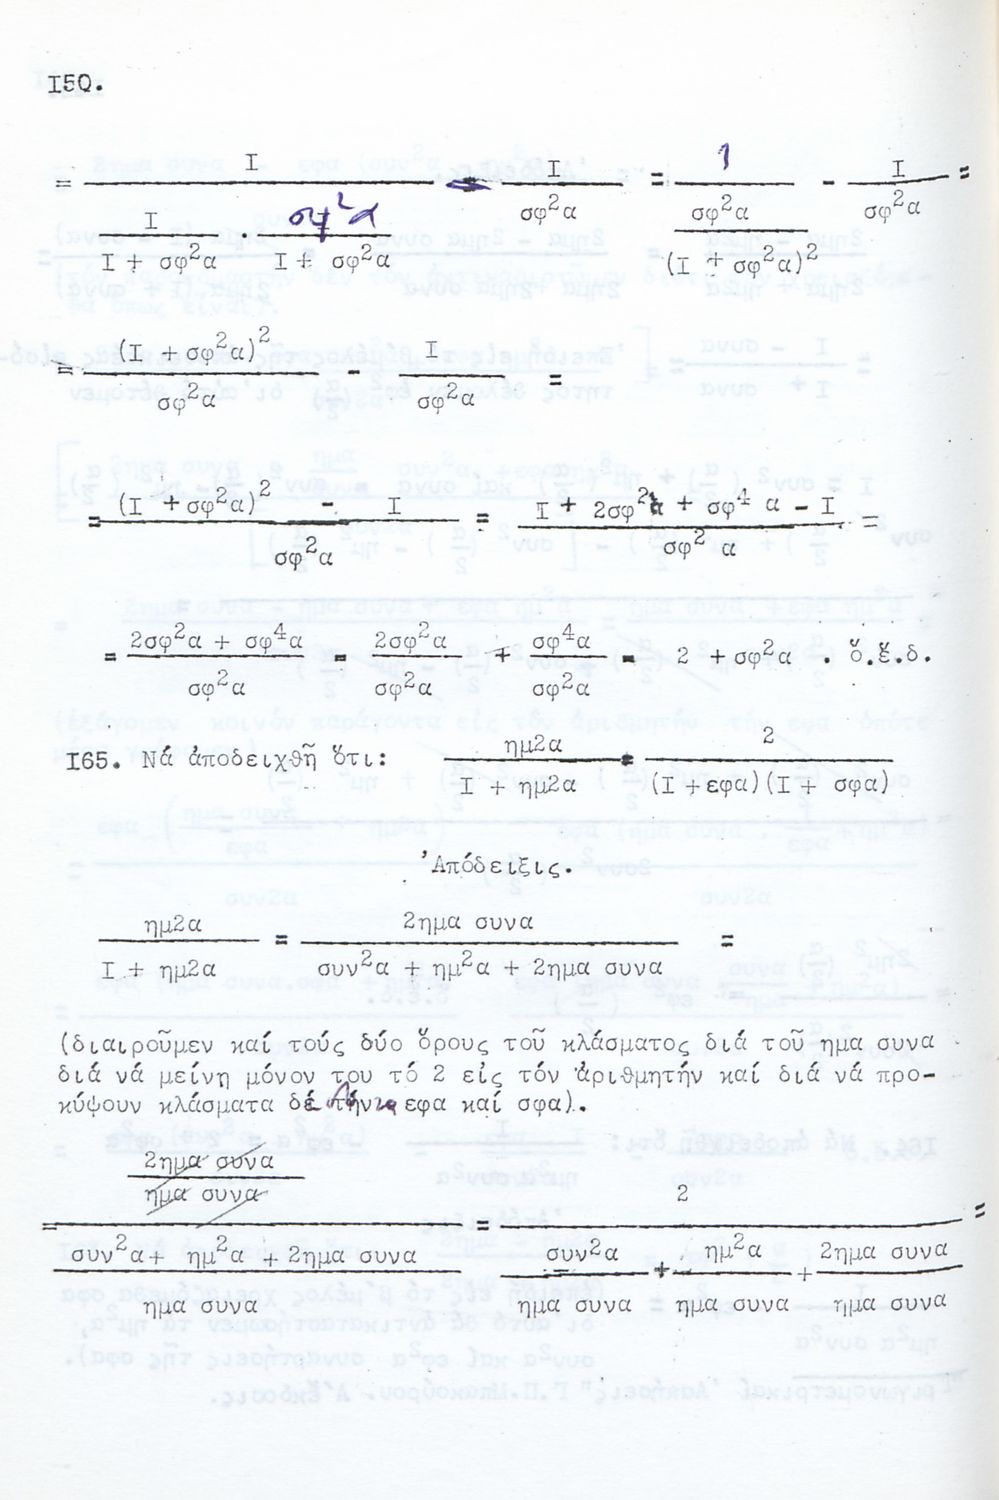 I50.
= I / (I / (I + σφ²α) · σφ²α / (I + σφ²α)) - I / σφ²α = 1 / (σφ²α / (I + σφ²α)²) - I / σφ²α =
= (I + σφ²α)² / σφ²α - I / σφ²α =
= ((I + σφ²α)² - I) / σφ²α = (I + 2σφ²α + σφ⁴ α - I) / σφ² α =
= (2σφ²α + σφ⁴α) / σφ²α = 2σφ²α / σφ²α + σφ⁴α / σφ²α = 2 + σφ²α . ὅ.ἔ.δ.
I65. Νά ἀποδειχθῆ ὅτι: ημ2α / (I + ημ2α) = 2 / ((I + εφα)(I + σφα))
'Απόδειξις.
ημ2α / (I + ημ2α) = 2ημα συνα / (συν²α + ημ²α + 2ημα συνα) =
(διαιροῦμεν καί τούς δύο ὅρους τοῦ κλάσματος διά τοῦ ημα συνα
διά νά μείνη μόνον του τό 2 εἰς τόν ἀριθμητήν καί διά νά προ-
κύψουν κλάσματα εφα καί σφα).
= (2ημα συνα / ημα συνα) / ((συν²α + ημ²α + 2ημα συνα) / ημα συνα) = 2 / (συν²α / ημα συνα + ημ²α / ημα συνα + 2ημα συνα / ημα συνα) =